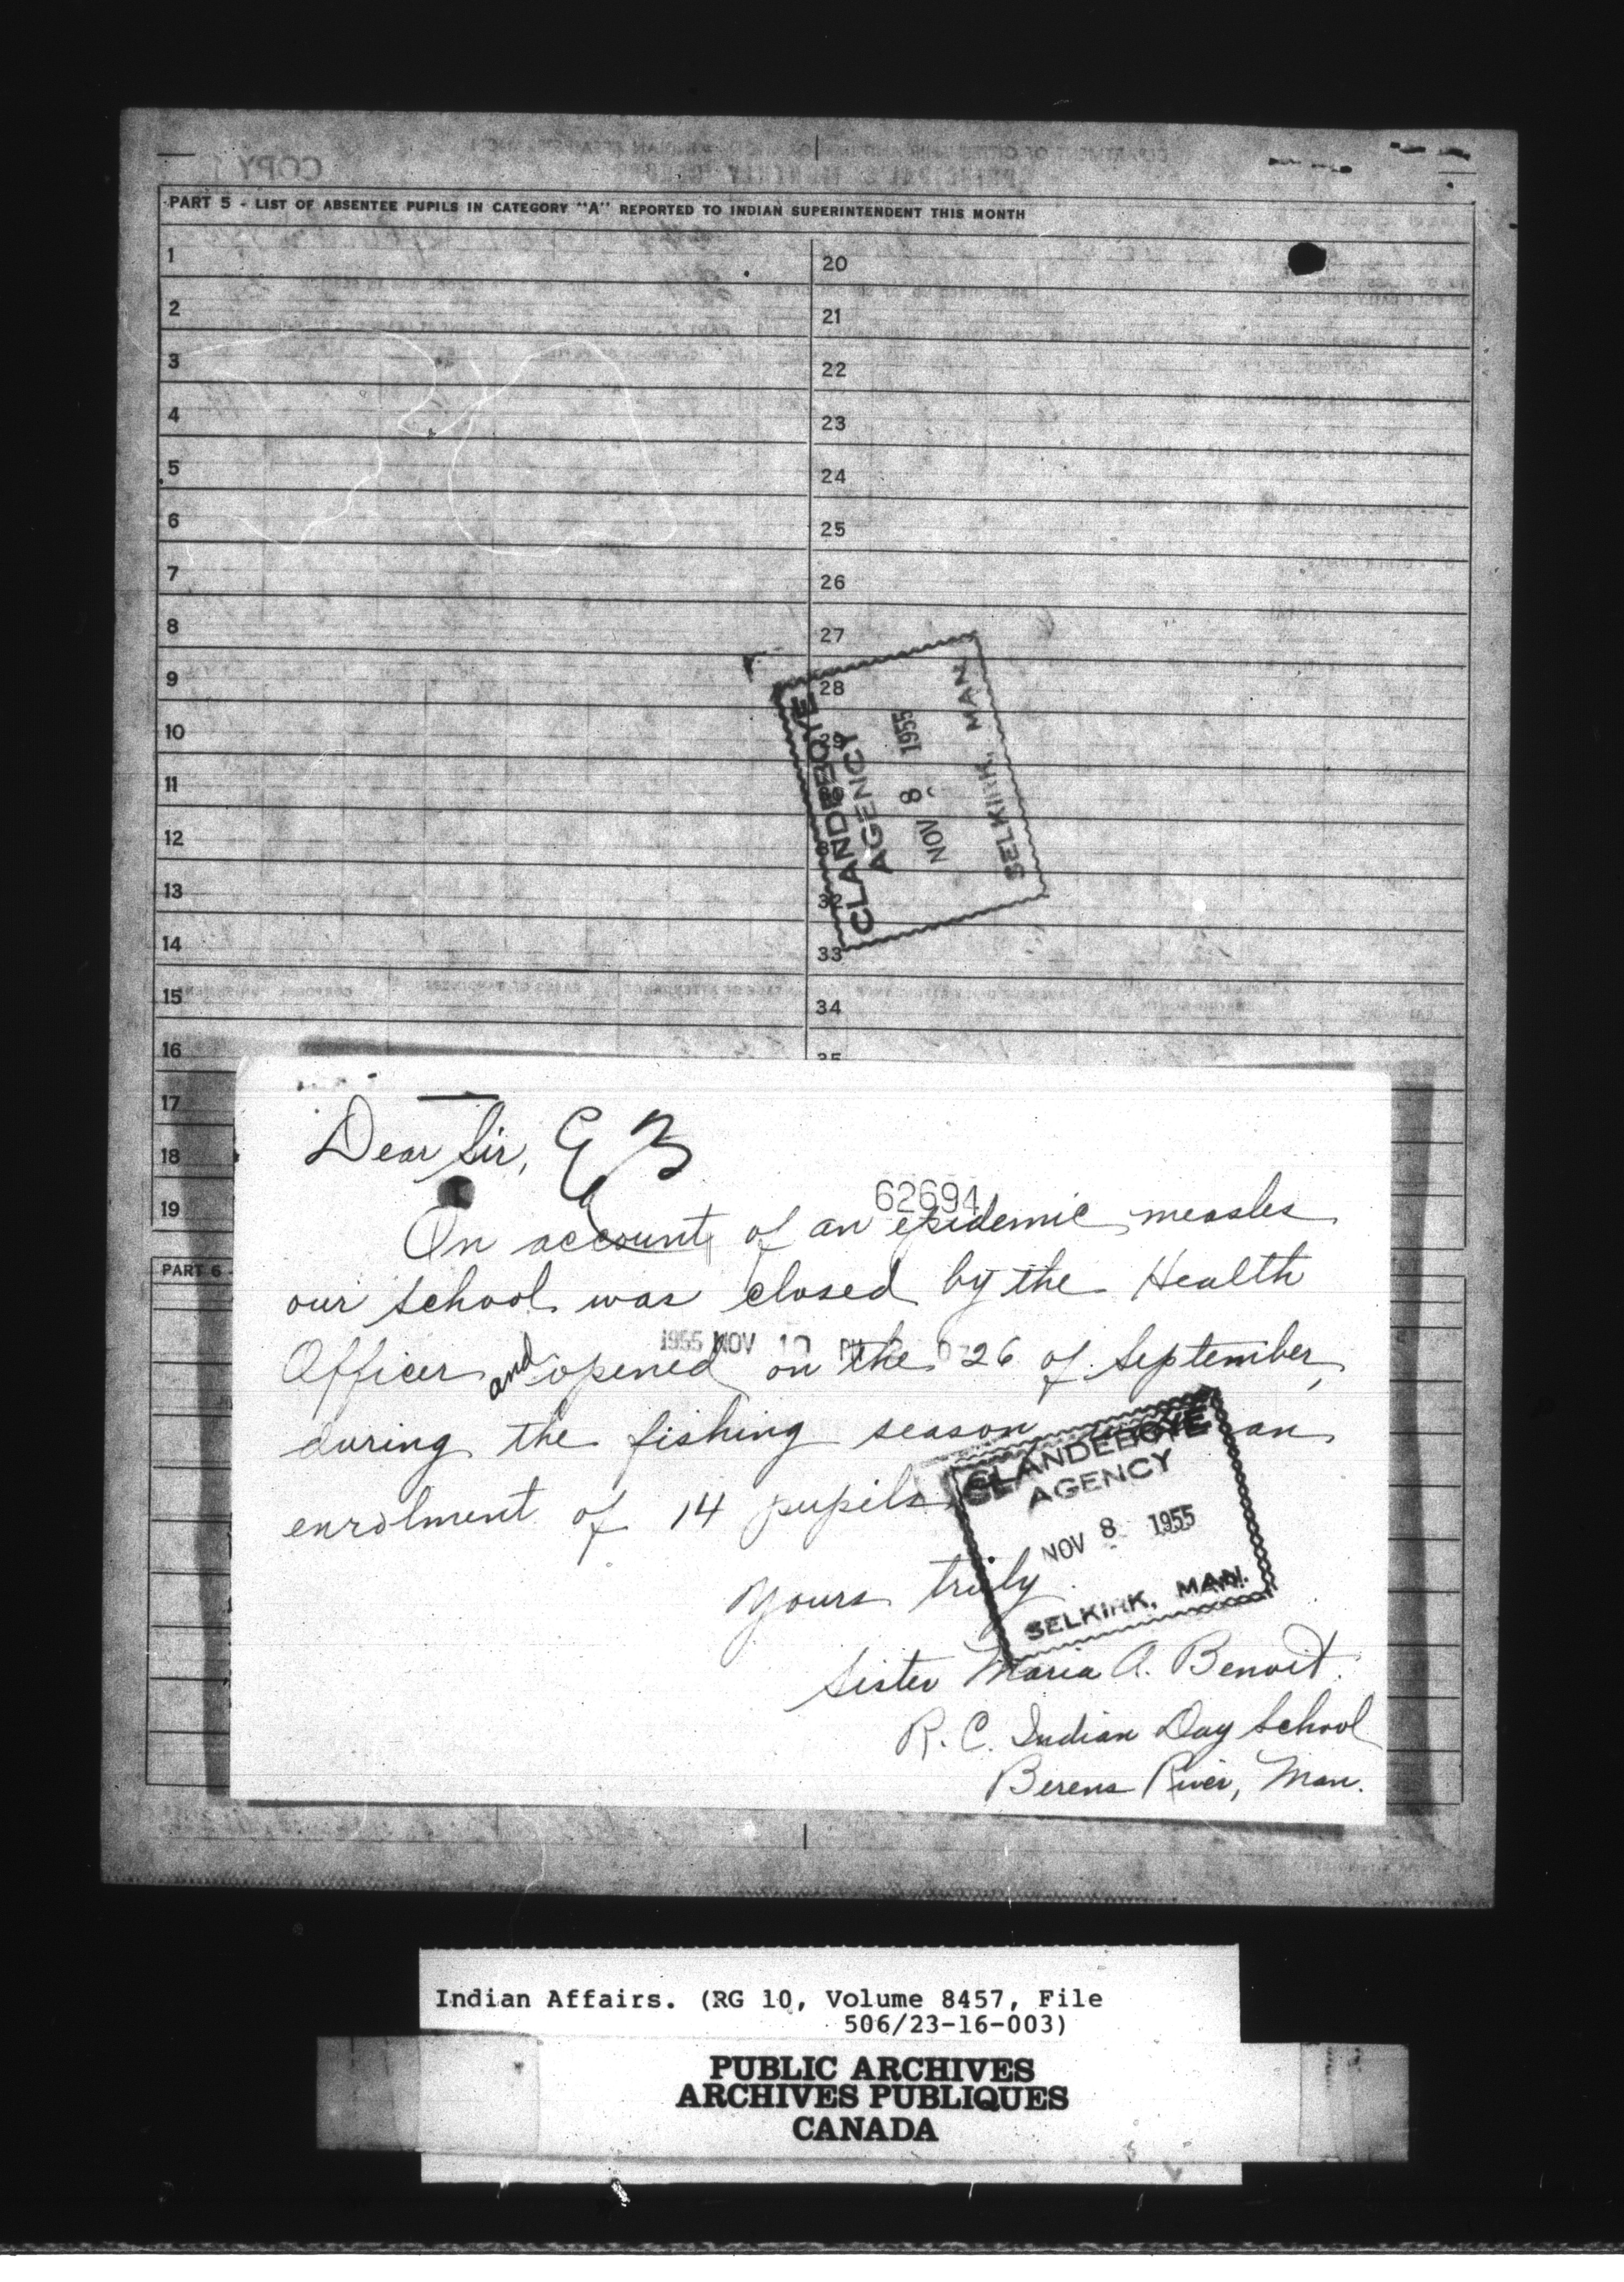 COPY 1
PART 5 - LIST OF ABSENTEE PUPILS IN CATEGORY "A" REPORTED TO INDIAN SUPERINTENDENT THIS MONTH
1
2
3
4
5
6
7
8
9
10
11
12
13
14
15
16
17
18
19
20
21
22
23
24
25
26
27
28
29
30
31
32
33
34
35
CLANDEBOYE
AGENCY
NOV 8 1955
SELKIRK, MAN.
PART 6 -
Dear Sir,
62694
On account of an epidemic measles
our school was closed by the Health
Officer and opened on the 26 of September,
1955 NOV 10 PM
during the fishing season an
enrolment of 14 pupils
Yours truly
CLANDEBOYE
AGENCY
NOV 8 1955
SELKIRK, MAN.
Sister Maria A. Benoit.
R. C. Indian Day School
Berens River, Man.
Indian Affairs. (RG 10, Volume 8457, File
506/23-16-003)
PUBLIC ARCHIVES
ARCHIVES PUBLIQUES
CANADA